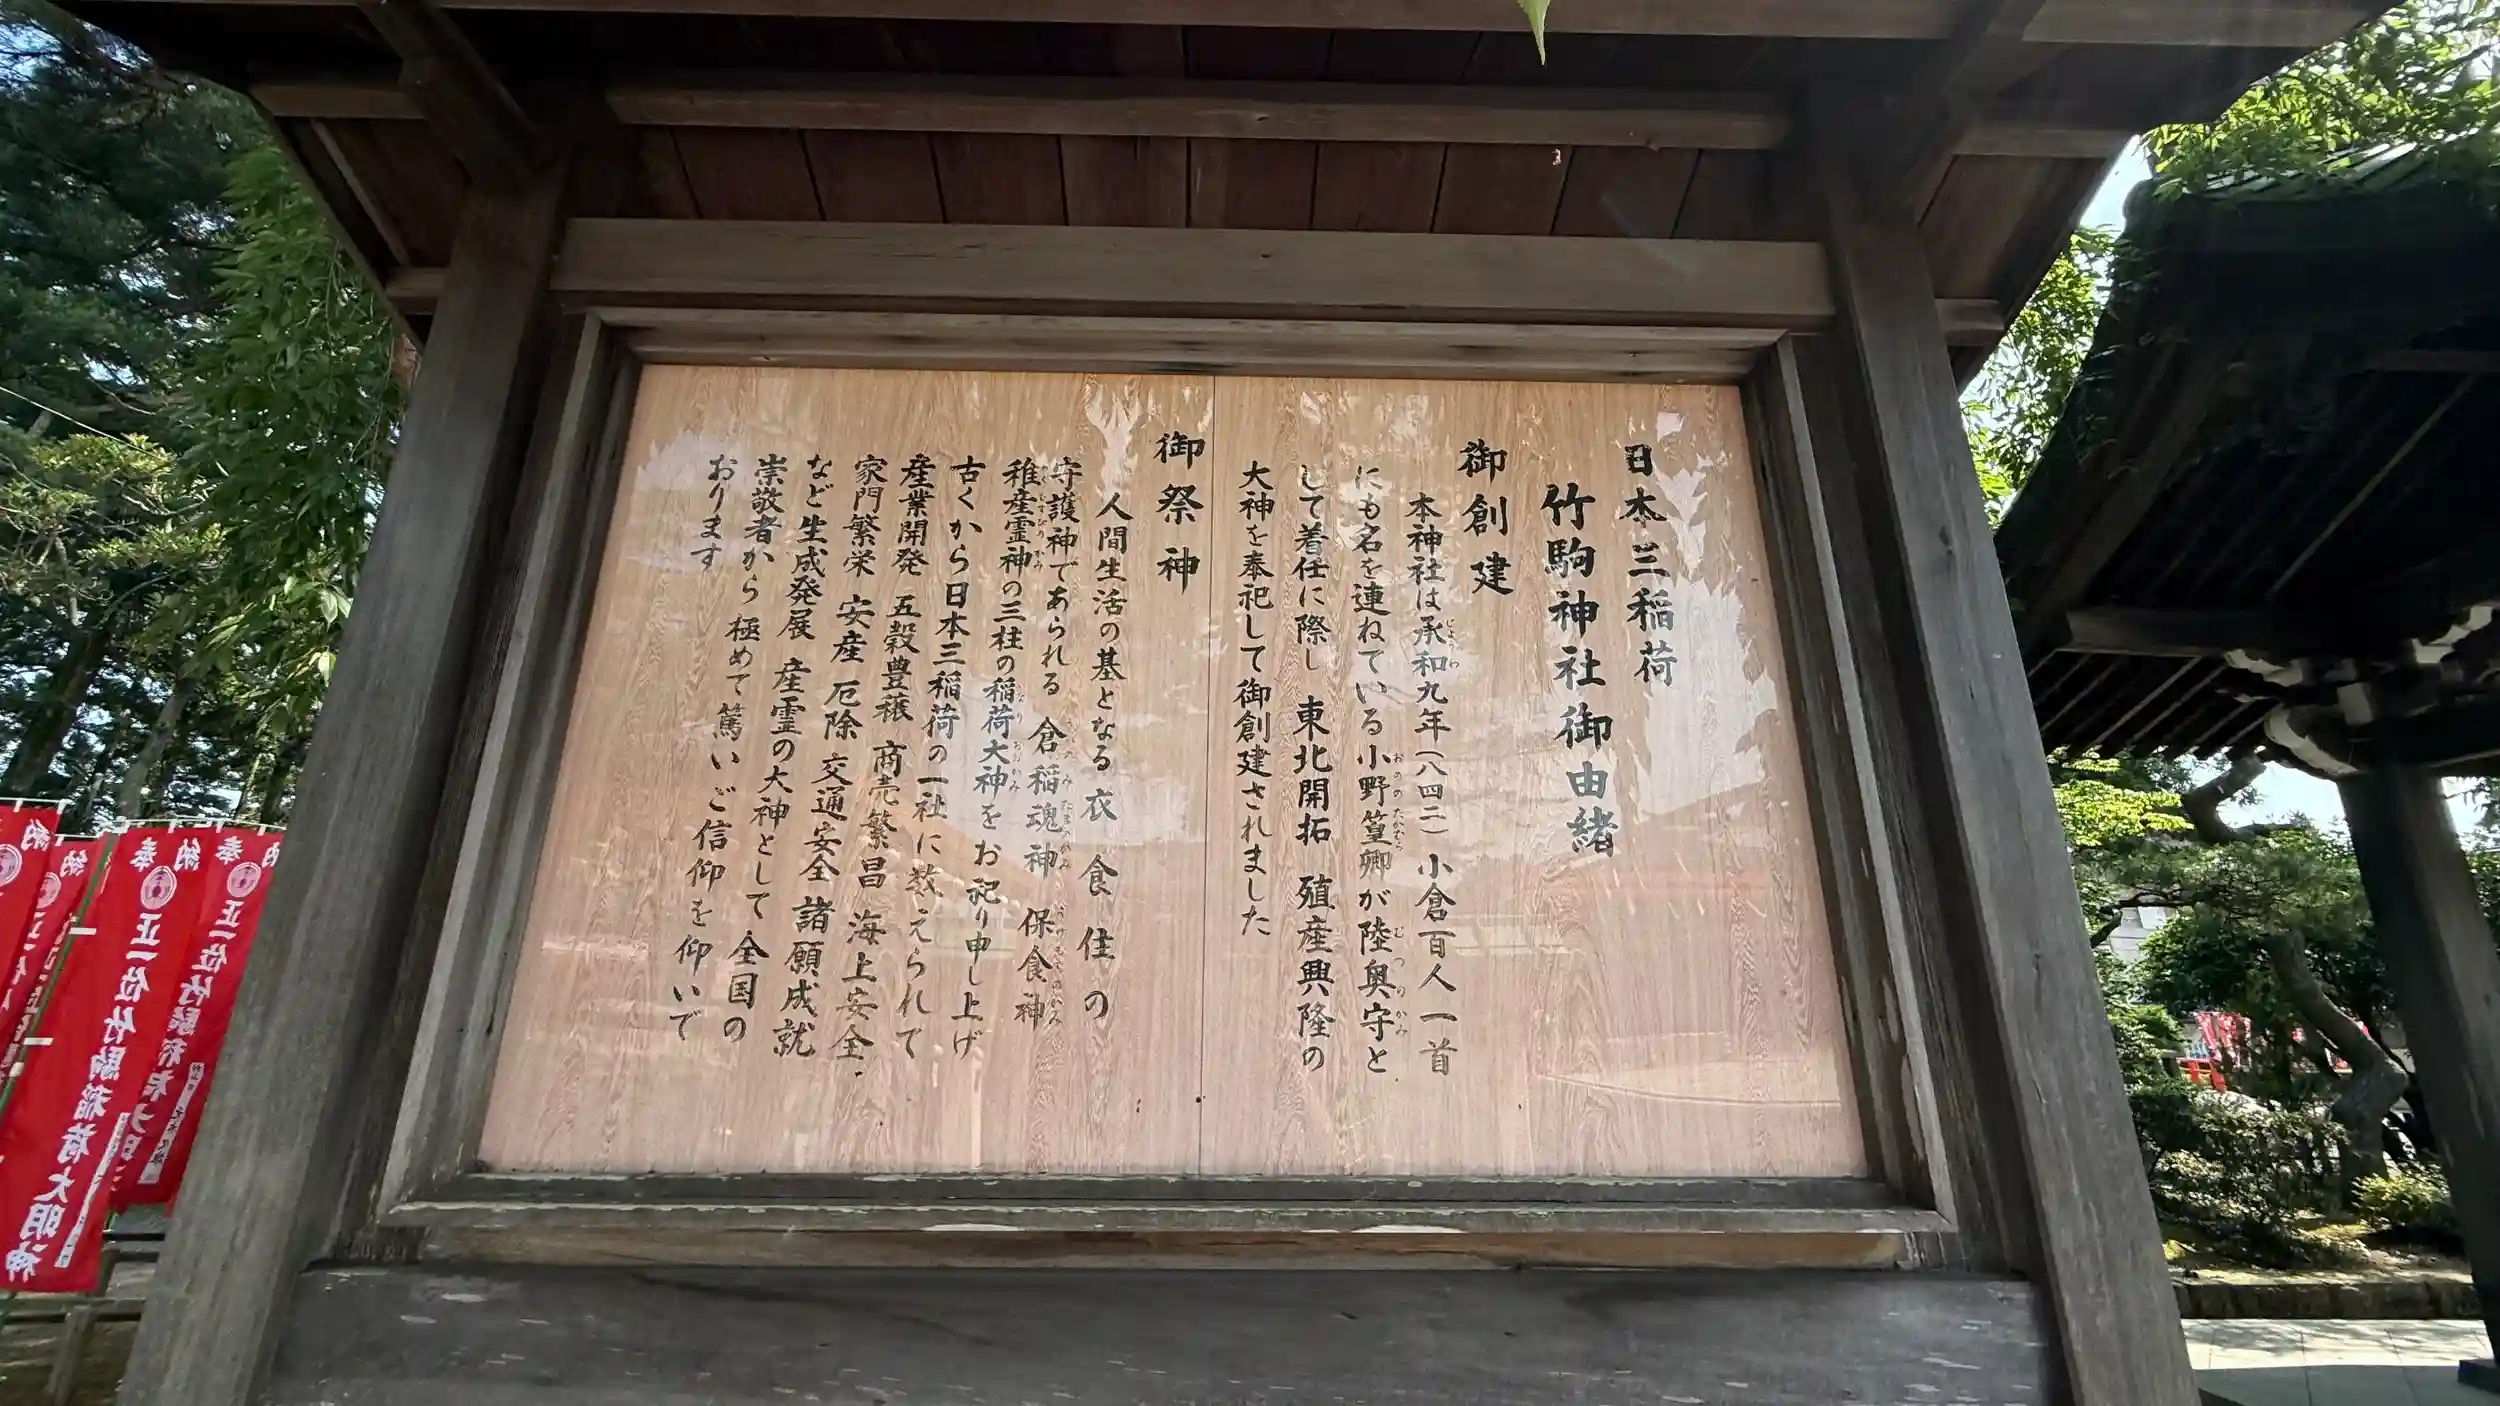 日本三稲荷
竹駒神社御由緒
御創建
本神社は承和九年（八四二）小倉百人一首
にも名を連ねている小野篁卿が陸奥守と
して着任に際し 東北開拓 殖産興隆の
大神を奉祀して御創建されました
御祭神
人間生活の基となる衣 食 住の
守護神であられる 倉稲魂神 保食神
稚産霊神の三柱の稲荷大神をお祀り申し上げ
古くから日本三稲荷の一社に数えられて
産業開発 五穀豊穣 商売繁昌 海上安全
家門繁栄 安産 厄除 交通安全 諸願成就
など生成発展 産霊の大神として全国の
崇敬者から極めて篤いご信仰を仰いで
おります
奉納
正一位竹駒稲荷大明神
奉納
正一位竹駒稲荷大明神